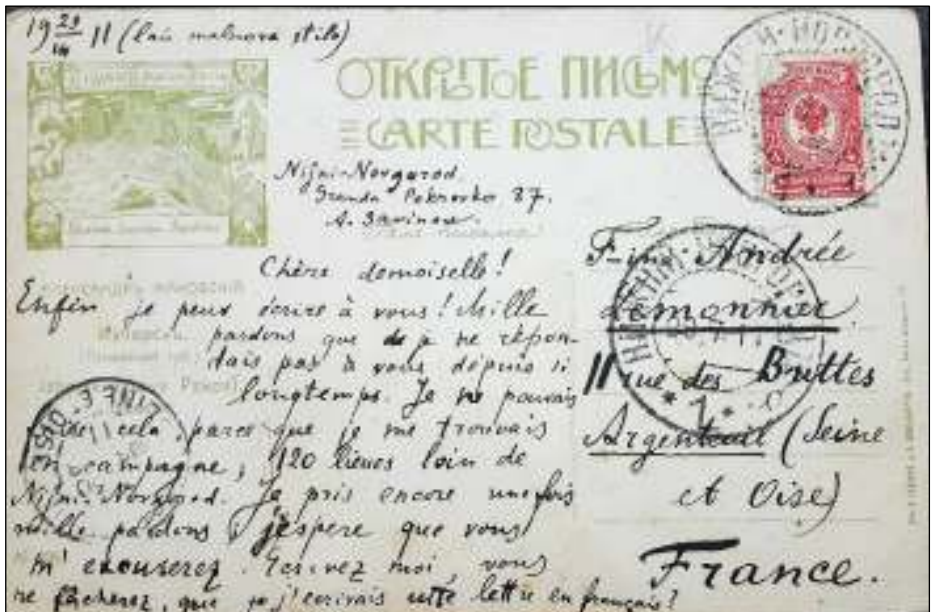 19 29/VII 11 (laŭ malnova stilo)
ОТКРЫТОЕ ПИСЬМО
CARTE POSTALE
Nijni-Novgorod.
Granda Pokrovka 87.
A. Savinow.
Chère demoiselle!
Enfin je peux écrire à vous! Mille
pardons que je ne répon-
dais pas à vous depuis si
longtemps. Je ne pouvais
cela, parce que je me trouvais
en campagne, 120 lieues loin de
Nijni-Novgorod. Je pris encore une fois
mille pardons, j'espere que vous
m'excuserez. Ecrivez moi, vous
ne fâcherez, que je j'ecrivais cette lettre en français?
F-ino Andrée
Lemonnier
11 rue des Buttes
Argenteuil (Seine
et Oise)
France.
НИЖНИЙ-НОВГОРОД
НИЖНИЙ-НОВГОРОД
SEINE-ET-OISE